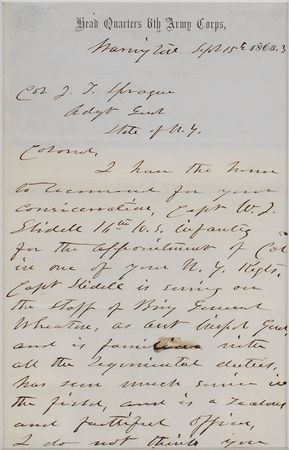 Head Quarters 6th Army Corps,
Sept 15th 1863.
Col J. T. Sprague
Adjt Genl
State of N.Y.
Colonel,
I have the honor
to recommend for your
consideration, Capt W. J.
Slidell 16th U.S. Infantry
for the appointment of Col
in one of your N.Y. Regts.
Capt Slidell is serving on
the Staff of Brig General
Wheaton, as
and is familiar with
all the regimental duties,
has seen much service in
the field, and is a zealous
and faithful officer,
I do not think you